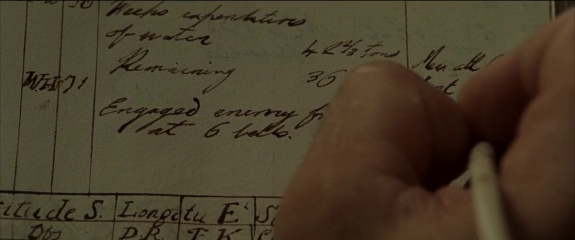 Weeks expenditure
of water 42 2/3 tons Men all
Remaining 36
Engaged enemy f
at 6 bells.
titude S. Longitu E. S
Obs D.R. T.K